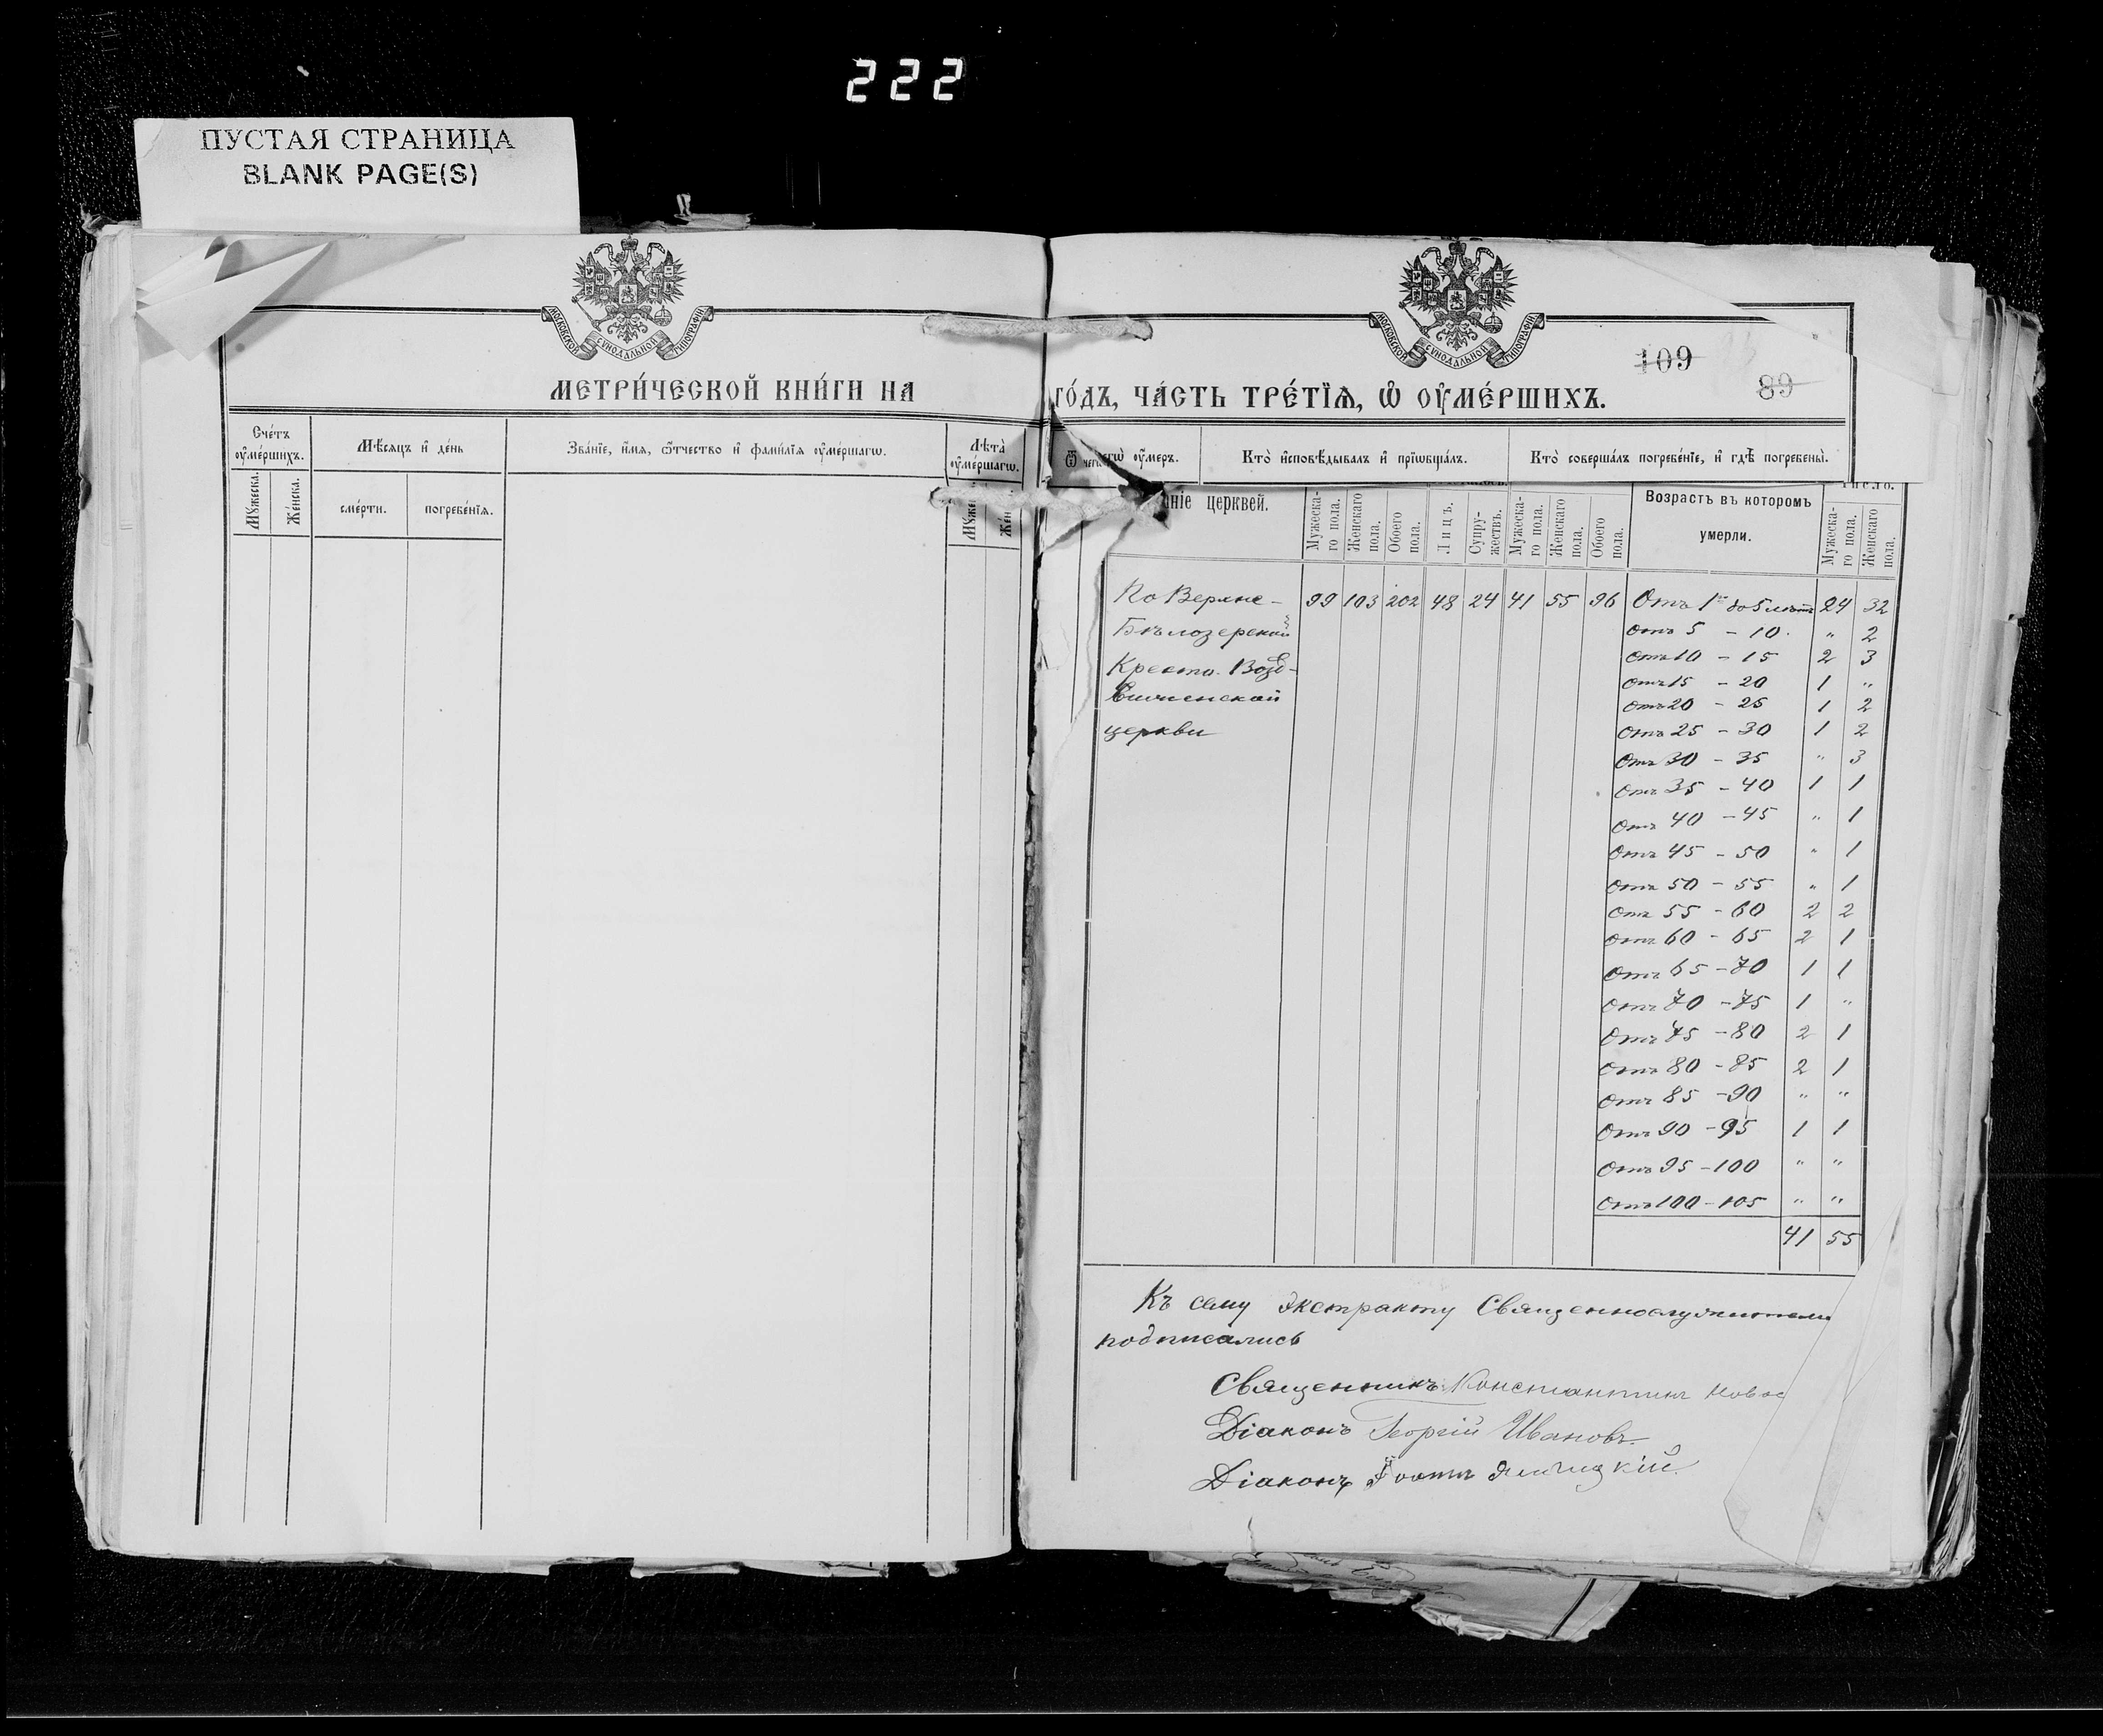 222
ПУСТАЯ СТРАНИЦА
BLANK PAGE(S)
МОСКОВСКОЙ СѴНОДАЛЬНОЙ ТИПОГРАФІИ
МЕТРИ́ЧЕСКОЙ КНИ́ГИ НА
Сче́тъ ᲂу҆ме́ршихъ.
Мѣ́сяцъ и҆ де́нь
Зва́нїе, и҆́мѧ, ѿтчество и҆ фами́лїѧ ᲂу҆ме́ршагѡ.
Лѣ́та ᲂу҆ме́ршагѡ.
Мꙋ́жеска.
Же́нска.
сме́рти.
погребе́нїѧ.
МОСКОВСКОЙ СѴНОДАЛЬНОЙ ТИПОГРАФІИ
109
89
ГО́ДЪ, ЧА́СТЬ ТРЕ́ТЇѦ, Ѡ҆ ОУ҆МЕ́РШИХЪ.
Ѿ чегѡ̀ ᲂу҆́меръ.
Кто̀ и҆сповѣ́дывалъ и҆ прїѡбща́лъ.
Кто̀ соверша́лъ погребе́нїе, и҆ гдѣ̀ погребены̀.
ніе церквей.
Мужеска-го пола.
Женскаго пола.
Обоего пола.
Лицъ.
Супру-жествъ.
Мужеска-го пола.
Женскаго пола.
Обоего пола.
Возрастъ въ которомъ умерли.
Мужеска-го пола.
Женскаго пола.
По Верхне- 99 103 202 48 24 41 55 96 Отъ 1го до 5 лѣтъ 24 32
Бѣлозерской Отъ 5 – 10. " 2
Кресто-Воздв- Отъ 10 – 15 2 3
Отъ 15 – 20 1 "
Отъ 20 – 25 1 2
церкви Отъ 25 – 30 1 2
Отъ 30 – 35 " 3
Отъ 35 – 40 1 1
Отъ 40 – 45 " 1
Отъ 45 – 50 " 1
Отъ 50 – 55 " 1
Отъ 55 – 60 2 2
Отъ 60 – 65 2 1
Отъ 65 – 70 1 1
Отъ 70 – 75 1 "
Отъ 75 – 80 2 1
Отъ 80 – 85 2 1
Отъ 85 – 90 " "
Отъ 90 – 95 1 1
Отъ 95 – 100 " "
Отъ 100 – 105 " "
41 55
Къ сему экстракту Священнослужители
подписались
Священникъ Константинъ
Діаконъ Георгій Ивановъ.
Діаконъ